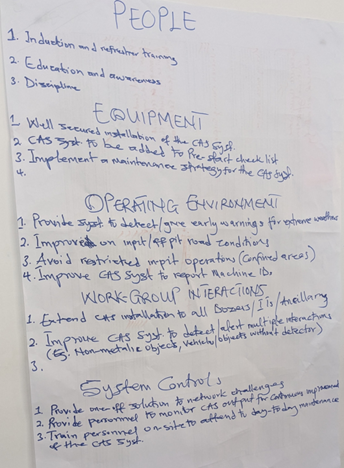 PEOPLE
1. Induction and refresher training
2. Education and awareness
3. Discipline
EQUIPMENT
1 Well secured installation of the CAS Syst.
2 CAS Syst to be added to Pre-Start check list
3. Implement a maintenance strategy for the CAS Syst.
4.
OPERATING ENVIRONMENT
1. Provide Syst to detect/give early warnings for extreme weathers
2. Improve on inpit/ pit road conditions
3. Avoid restricted inpit operations (Confined areas)
4. Improve CAS Syst to report Machine IDs
WORK-GROUP INTERACTIONS
1. Extend CAS installation to all Dozers/ITs/Ancillary
2. Improve CAS Syst to detect/alert multiple interactions
( Non-metallic objects, vehicles/objects without detector)
3.
System Controls
1 Provide one-off solution to network challenges
2 Provide personnel to monitor CAS output for Continuous
3. Train personnel on-site to attend to day-to-day maintenance
of the CAS Syst.